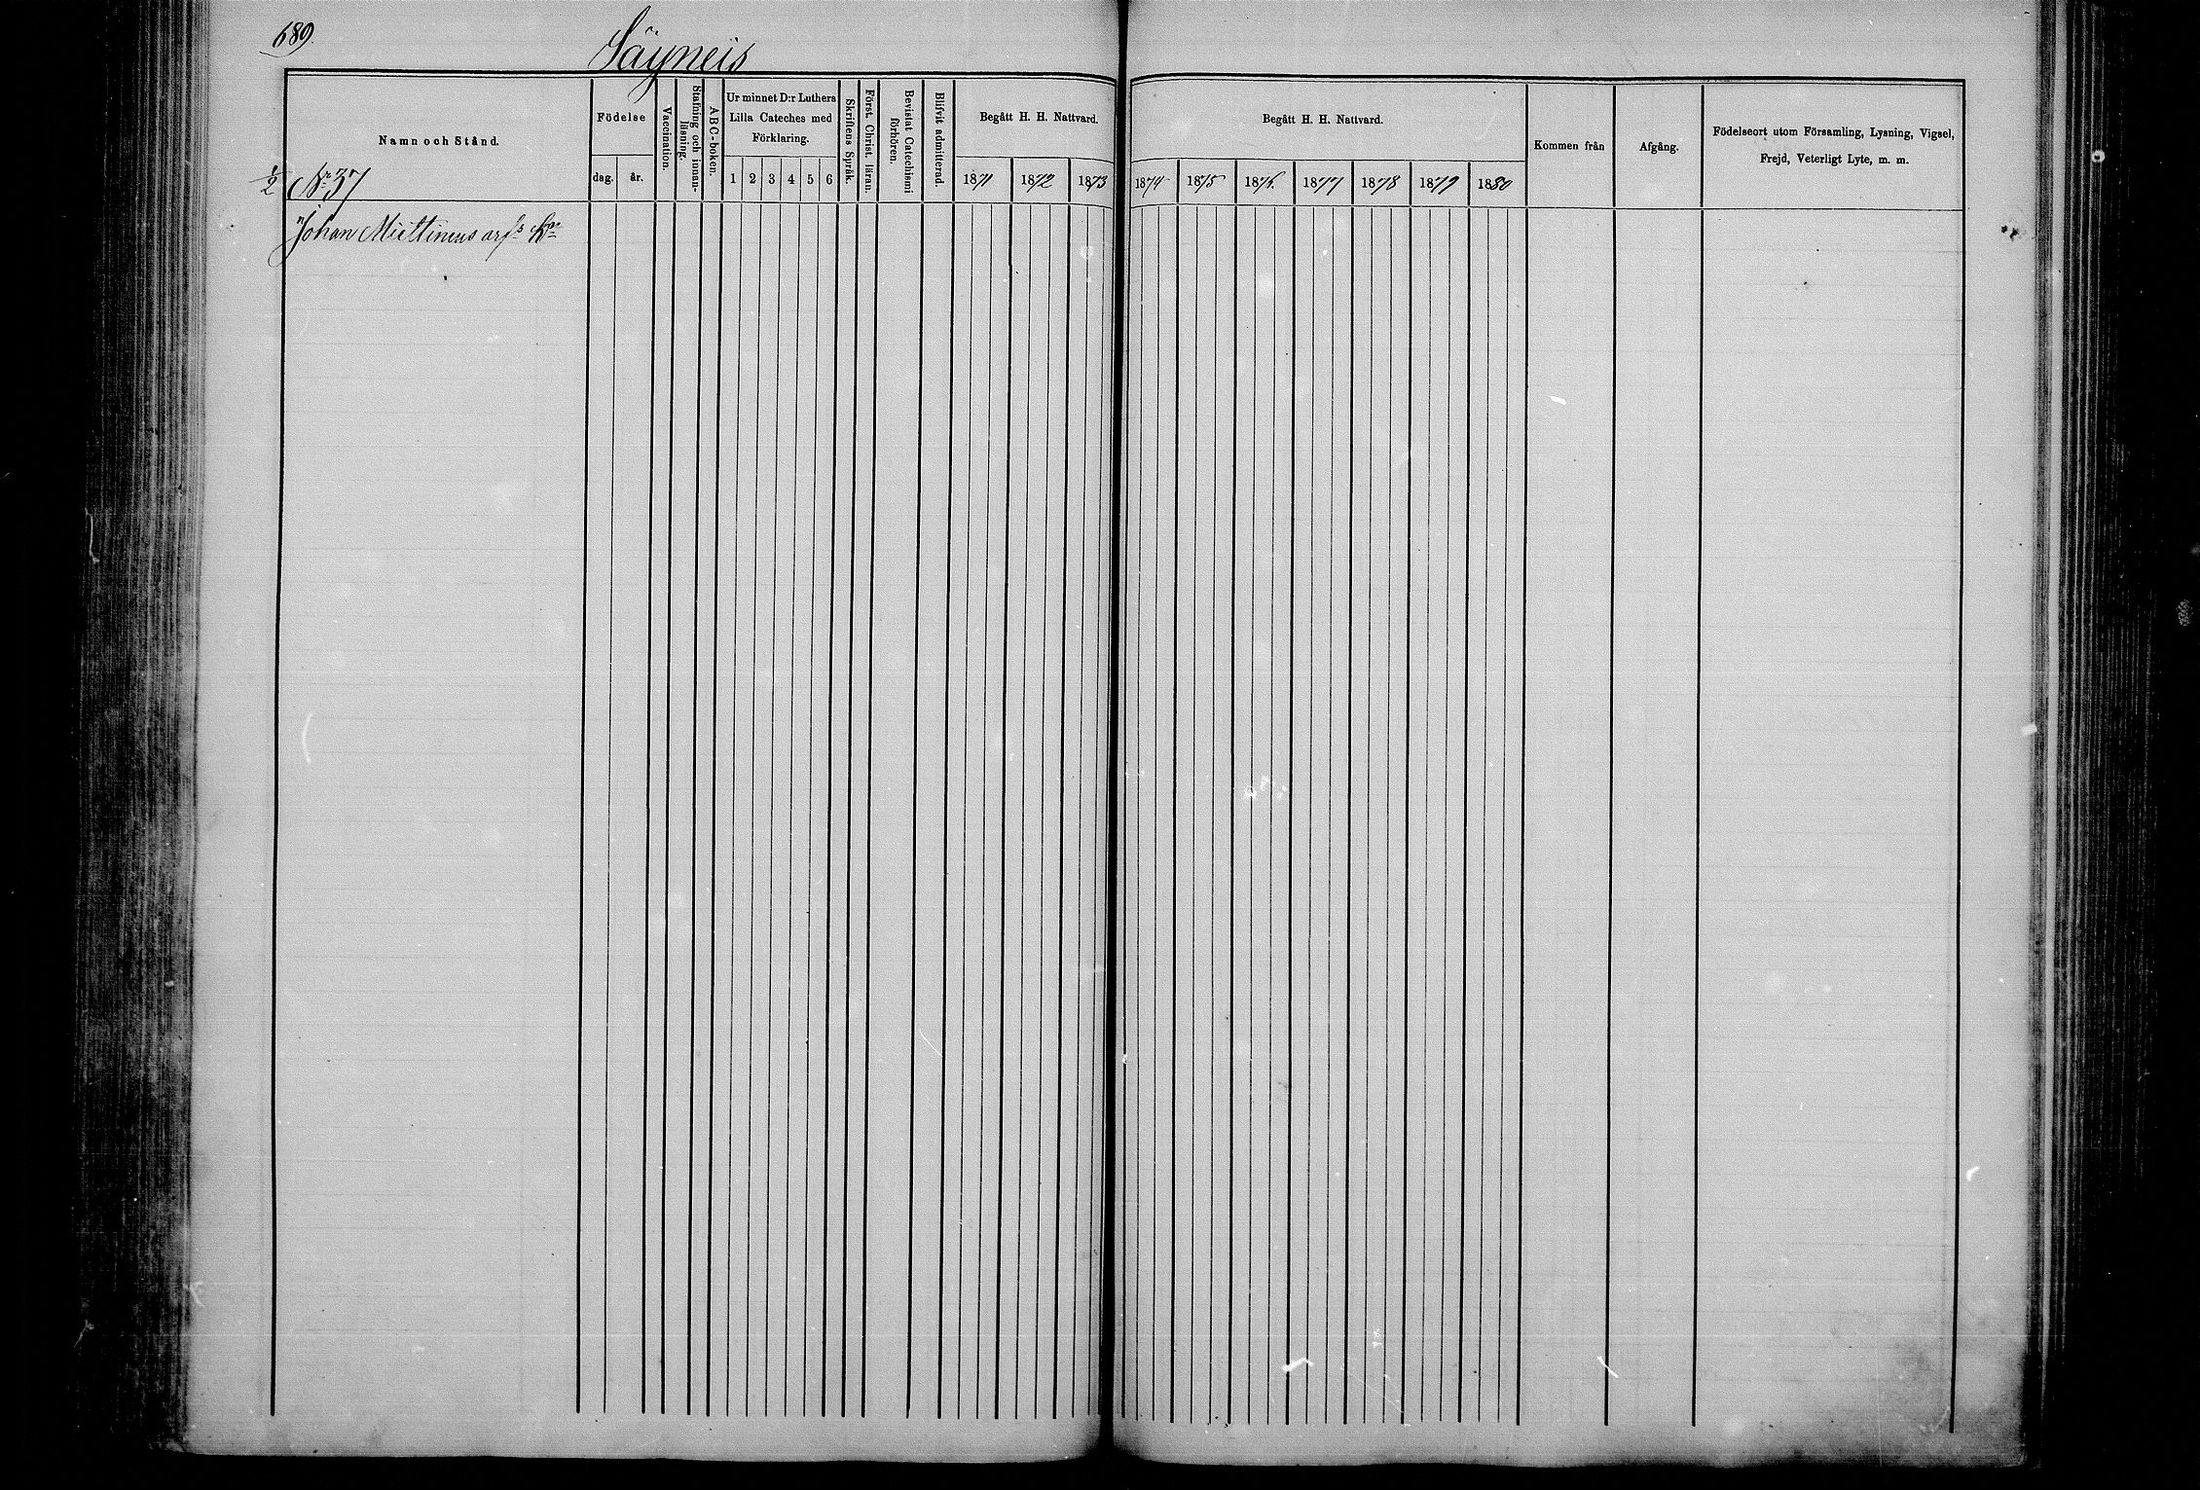 689.
Säyneis
Namn och Stånd.
Födelse
dag.
år.
Vaccination.
Stafning och innan-
läsning.
ABC-boken.
Ur minnet D:r Luthers
Lilla Cateches med
Förklaring.
1 2 3 4 5 6
Skriftens Språk.
Först. Christ. läran.
Bevistat Catechismi
förhören.
Blifvit admitterad.
Begått H. H. Nattvard.
1871 1872 1873
Begått H. H. Nattvard.
1874 1875 1876. 1877 1878 1879 1880
Kommen från
Afgång.
Födelseort utom Församling, Lysning, Vigsel,
Frejd, Veterligt Lyte, m. m.
1/2 No 37
Johan Miettinens arfs